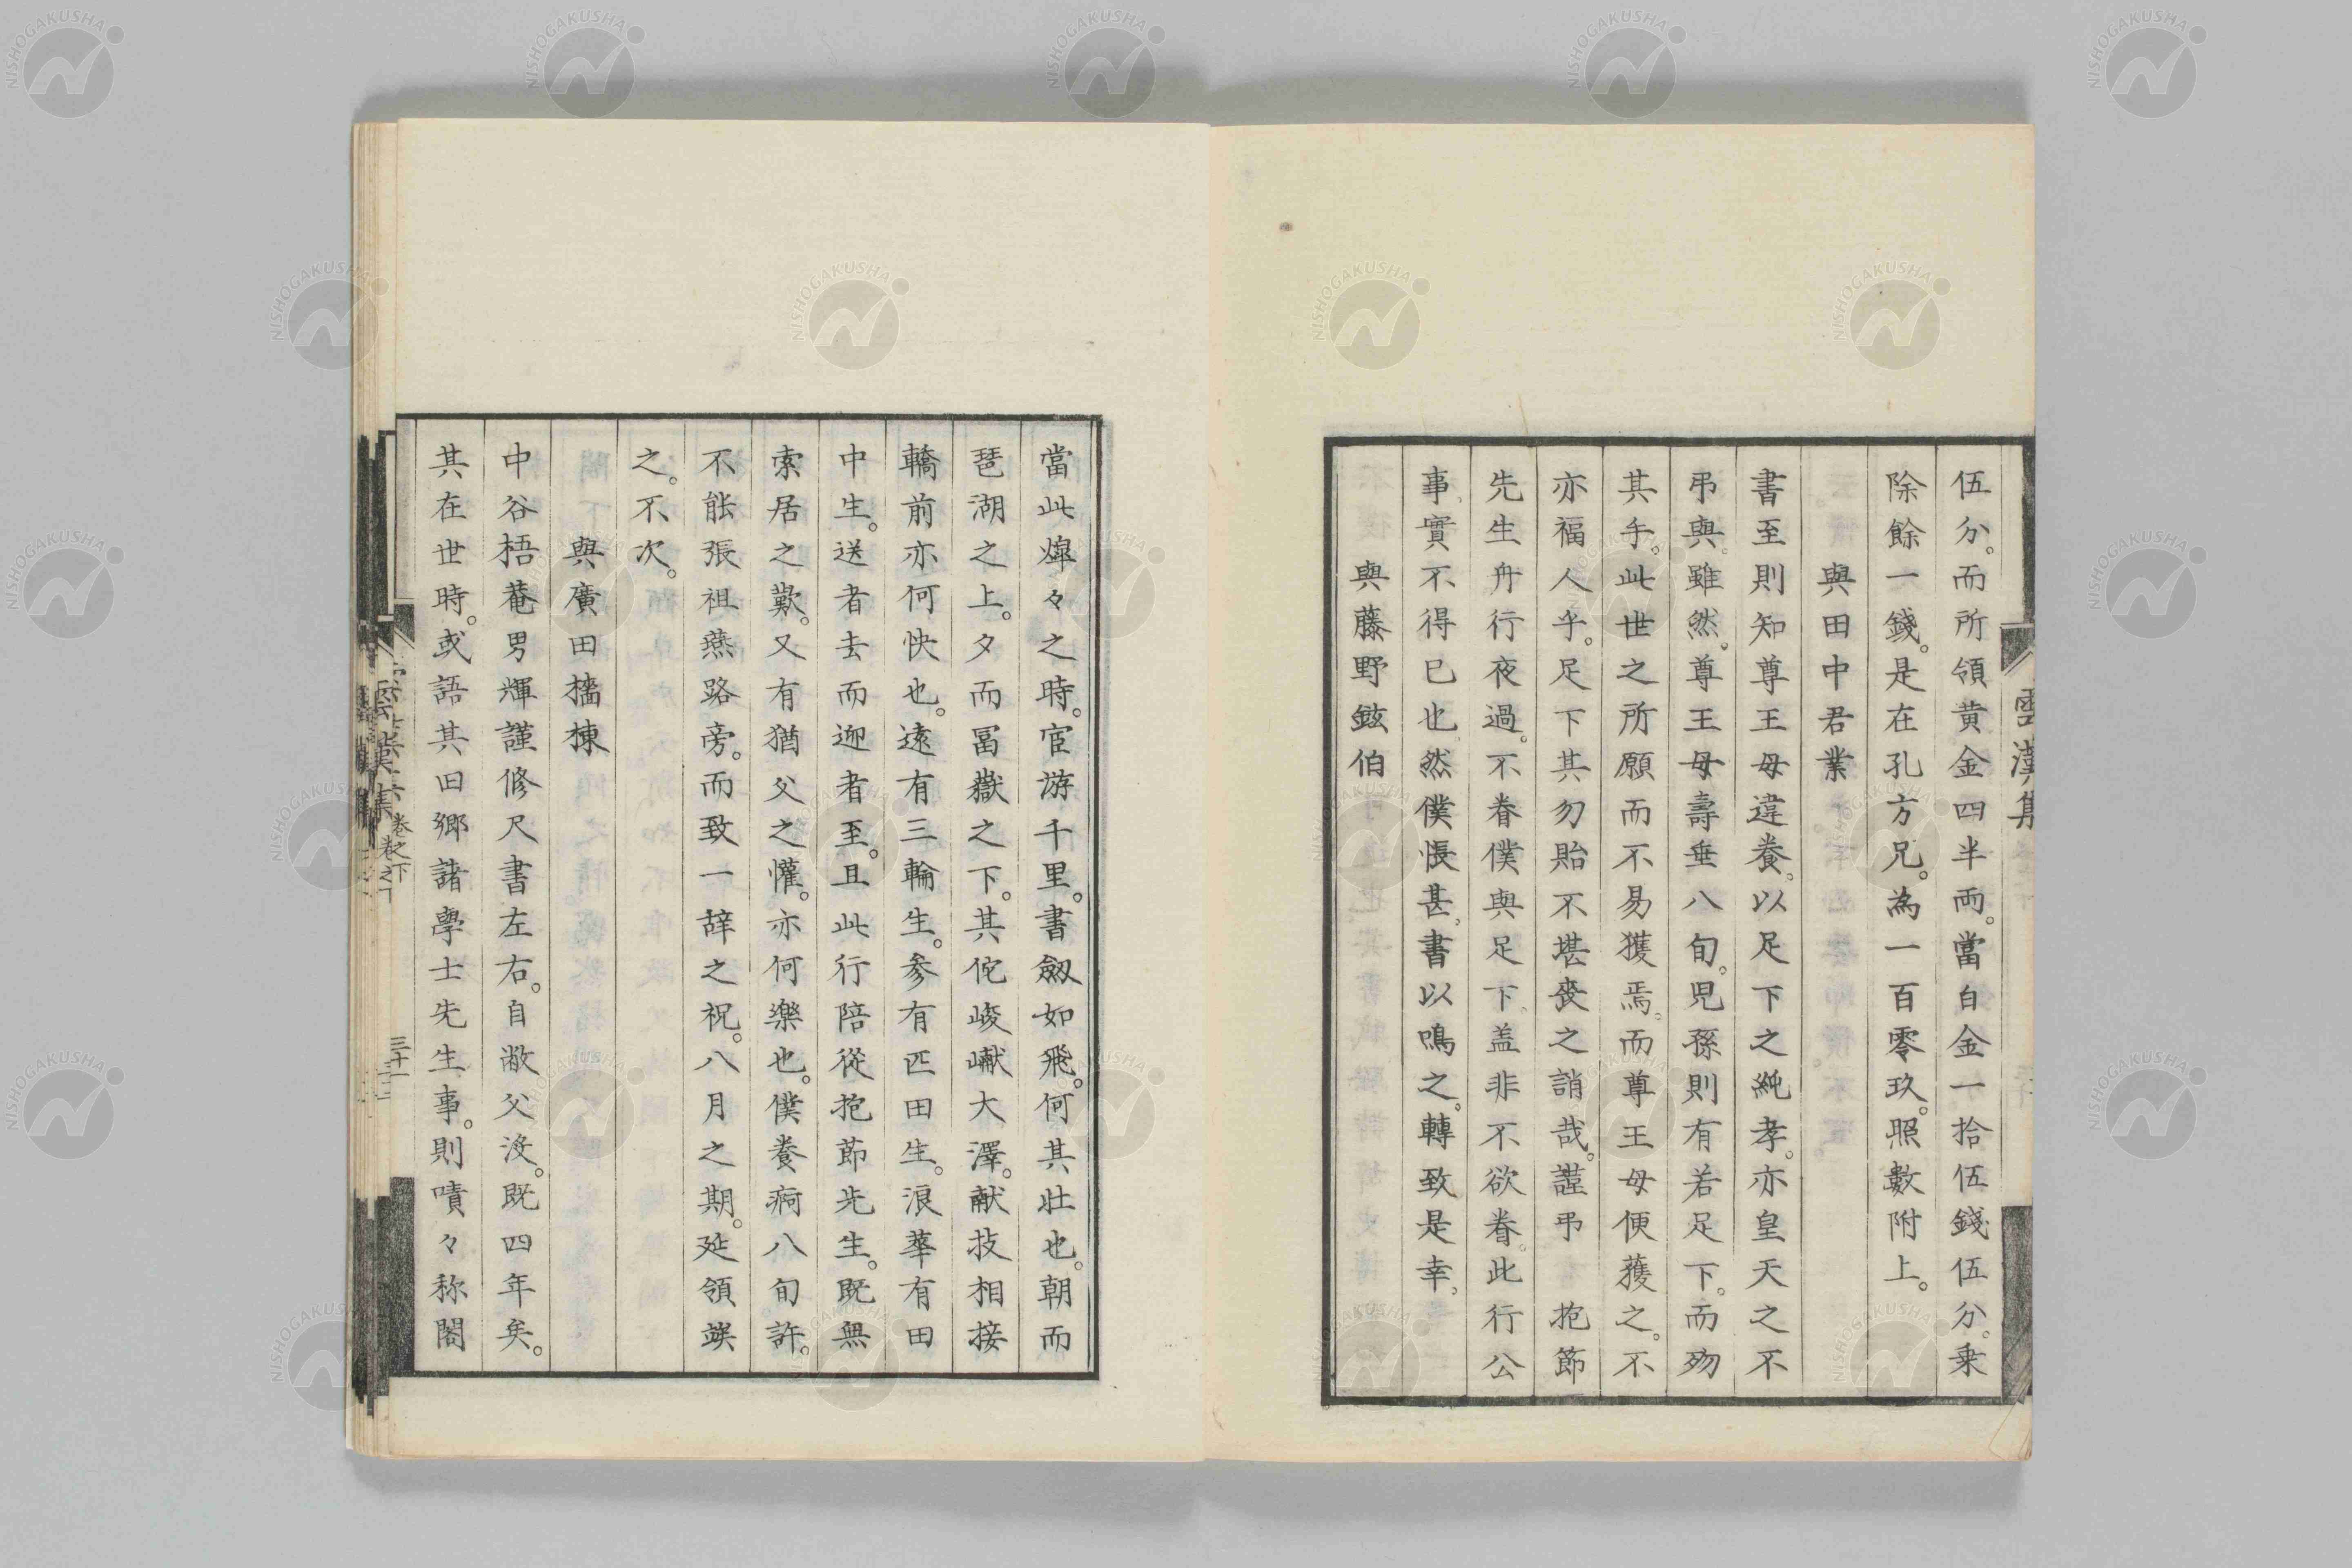 伍分。而所領黄金四半両。當白金一拾伍錢伍分。乗
除餘一錢。是在孔方兄。為一百零玖。照數附上。
與田中君業
書至則知尊王母違養。以足下之純孝。亦皇天之不
弔與。雖然。尊王母壽垂八旬。児孫則有若足下。而歾
其手。此世之所願而不易獲焉。而尊王母便獲之。不
亦福人乎。足下其勿貽不堪喪之誚哉。謹弔 抱節
先生舟行夜過。不眷僕與足下。盖非不欲眷。此行公
事。實不得已也。然僕悵甚。書以鳴之。轉致是幸。
與藤野鉉伯
當此燀々之時。宦游千里。書劔如飛。何其壮也。朝而
琶湖之上。夕而冨嶽之下。其佗峻巘大澤。献技相接
轎前亦何快也。遠有三輪生。参有匹田生。浪華有田
中生。送者去而迎者至。且此行陪從抱節先生。既無
索居之歎。又有猶父之懽。亦何樂也。僕養痾八旬許。
不能張祖燕路旁。而致一辞之祝。八月之期。延領竢
之。不次。
與廣田檣棟
中谷梧菴男輝謹修尺書左右。自敝父没。既四年矣。
其在世時。或語其旧郷諸學士先生事。則嘖々称閣
雲漢集
雲漢集 卷之下 三十一
NISHOGAKUSHA